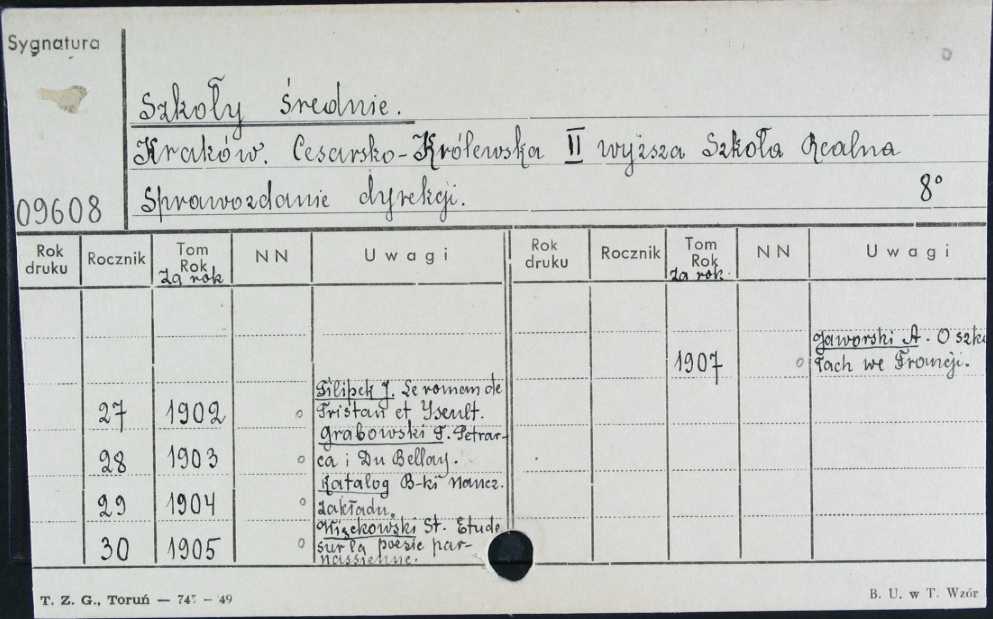 Sygnatura
Szkoły średnie.
Kraków. Cesarsko-Królewska II wyższa Szkoła Realna
Sprawozdanie dyrekcji. 8°
09608
Rok druku Rocznik Tom Rok Za rok NN Uwagi Rok druku Rocznik Tom Rok za rok NN Uwagi
27 1902 Filipek J. Le roman de
Tristan et Yseult.
28 1903 Grabowski T. Petrar-
ca i Du Bellay.
29 1904 Katalog B-ki naucz.
zakładu.
30 1905 St. Etude
sur la poesie par-
nassienne.
1907 Jaworski A. O szko
łach we Francji.
T. Z. G., Toruń — 745 — 49
B. U. w T. Wzór